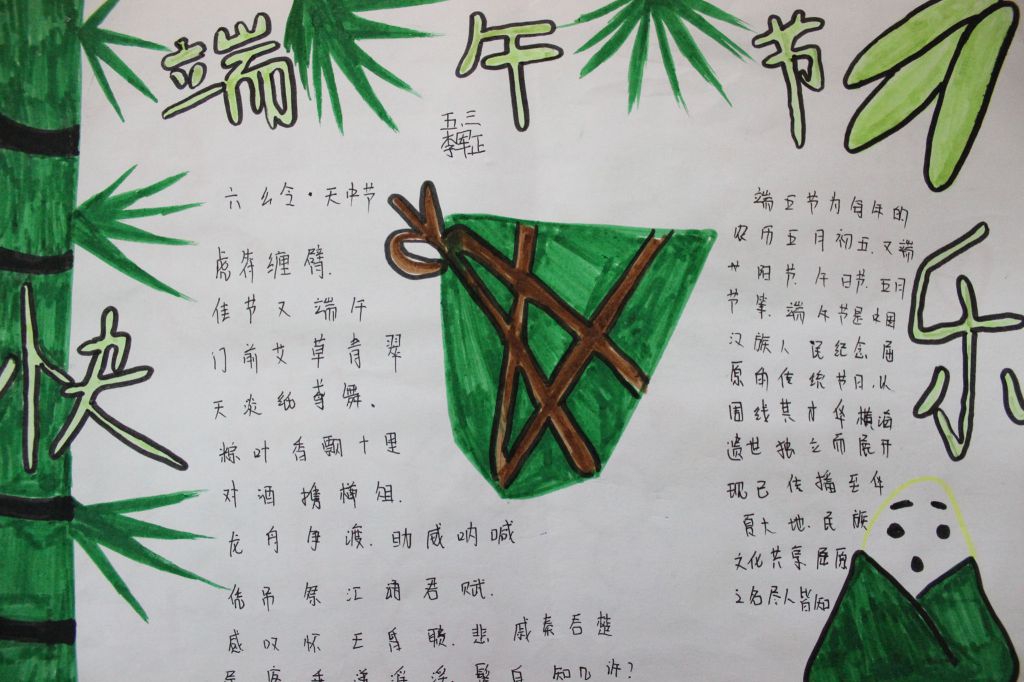 端午节
快
乐
五.三
李军正
六么令·天中节
虎符缠臂.
佳节又端午
门前艾草青翠
天淡纸鸢舞.
粽叶香飘十里
对酒携樽俎.
龙舟争渡.助威呐喊
凭吊祭江诵君赋.
感叹怀王昏聩.悲戚秦吞楚
异客垂涕淫淫.鬓白知几许?
端五节为每年的
农历五月初五.又端
阳节.午日节.五月
节等.端午节是中国
汉族人民纪念屈
原的传统节日.以
围线其才华横海
遗世独立而展开
现已传播至华
夏大地.民族
文化共享屈原
之名尽人皆知